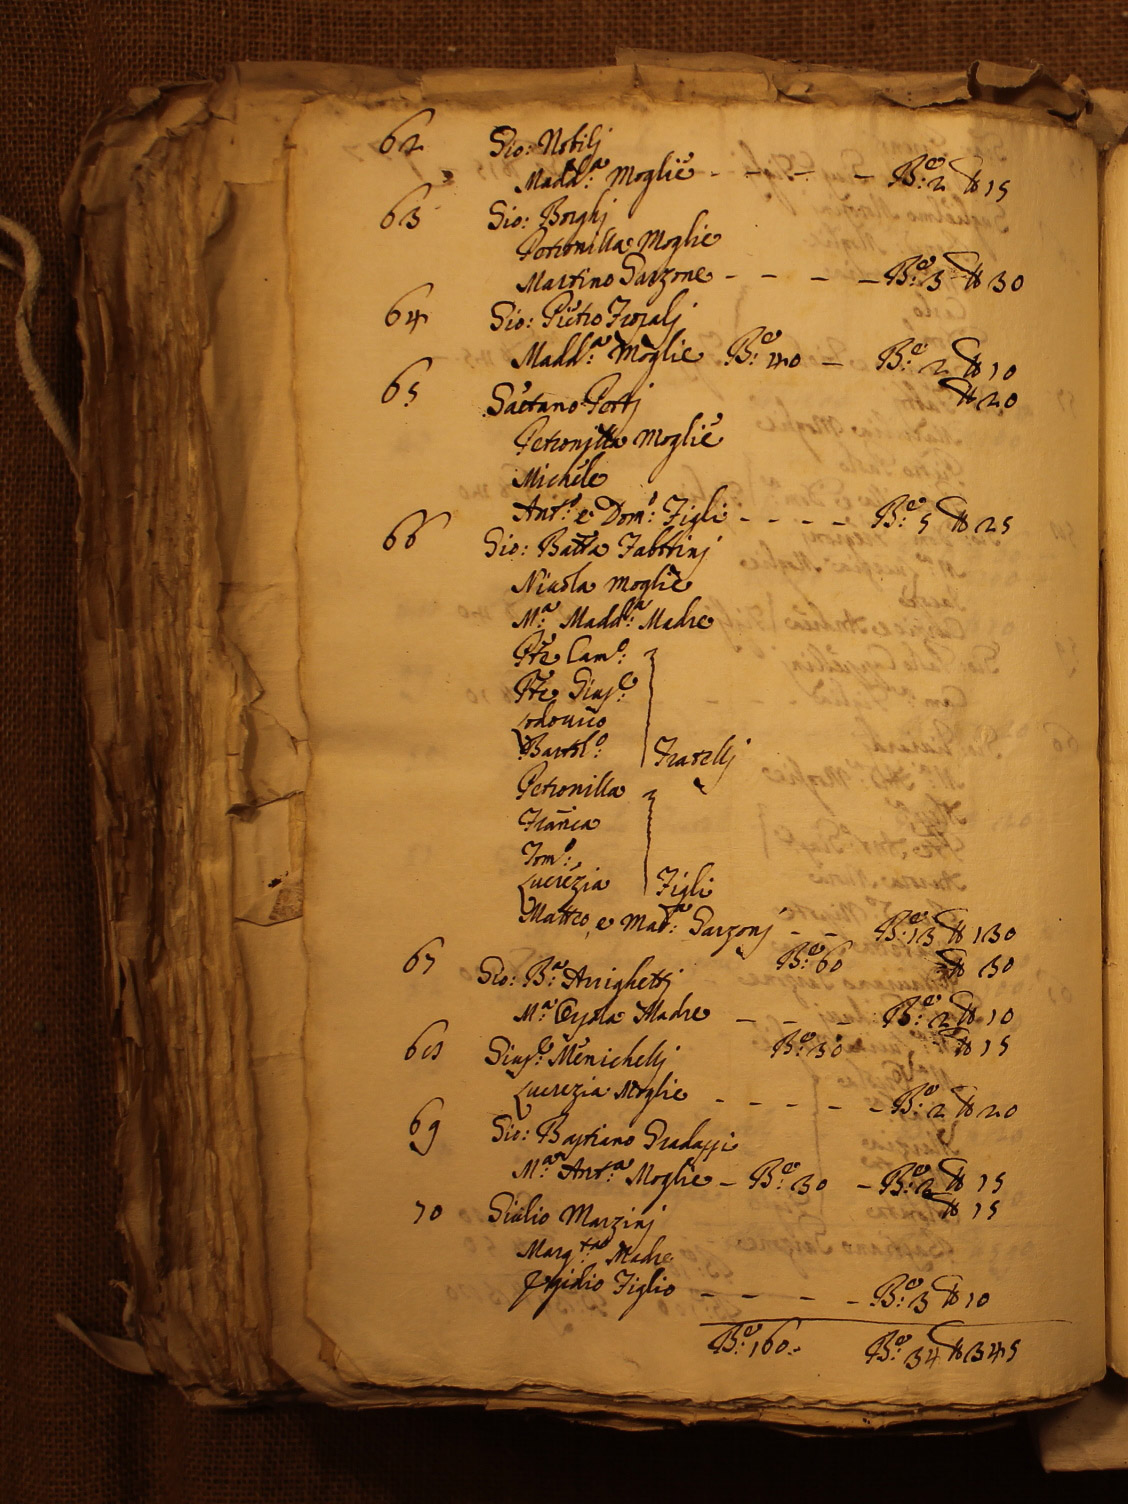 62 Gio: Nobilj
Madd:ª Moglie - - - - B:e 2 ₶ 15
63 Gio: Borghj
Petronilla Moglie
Martino Garzone - - - - B:e 3 ₶ 30
64 Gio: Pietro
Madd:ª Moglie B:e 40 - B:e 2 ₶ 10
₶ 20
65 Gaetano
Petronilla Moglie
Michele
Ant:o e Dom:o Figli - - - - B:e 5 ₶ 25
66 Gio: Batta Fabbrinj
Nicola moglie
M:ª Madd:ª Madre
Pre Cam:o
Pre Gius:e
Lodovico
Bartol:o Fratellj
Petronilla
Franca
Tom:o
Lucrezia Figli
Matteo, e Mad:ª Garzonj - - B:e 13 ₶ 130
B:e 60 ₶ 30
67 Gio: B:ª Arrighettj
M:ª Madre - - - B:e 2 ₶ 10
B:e 30 ₶ 15
68 Gius:e Menichellj
Lucrezia Moglie - - - - - B:e 2 ₶ 20
69 Gio: Bastiano
M:ª Ant:ª Moglie - B:e 30 - B:e 2 ₶ 15
₶ 15
70 Giulio Marzinj
Marg:ta Madre
Egidio Figlio - - - - B:e 3 ₶ 10
B:e 160: B:e 34 ₶ 345